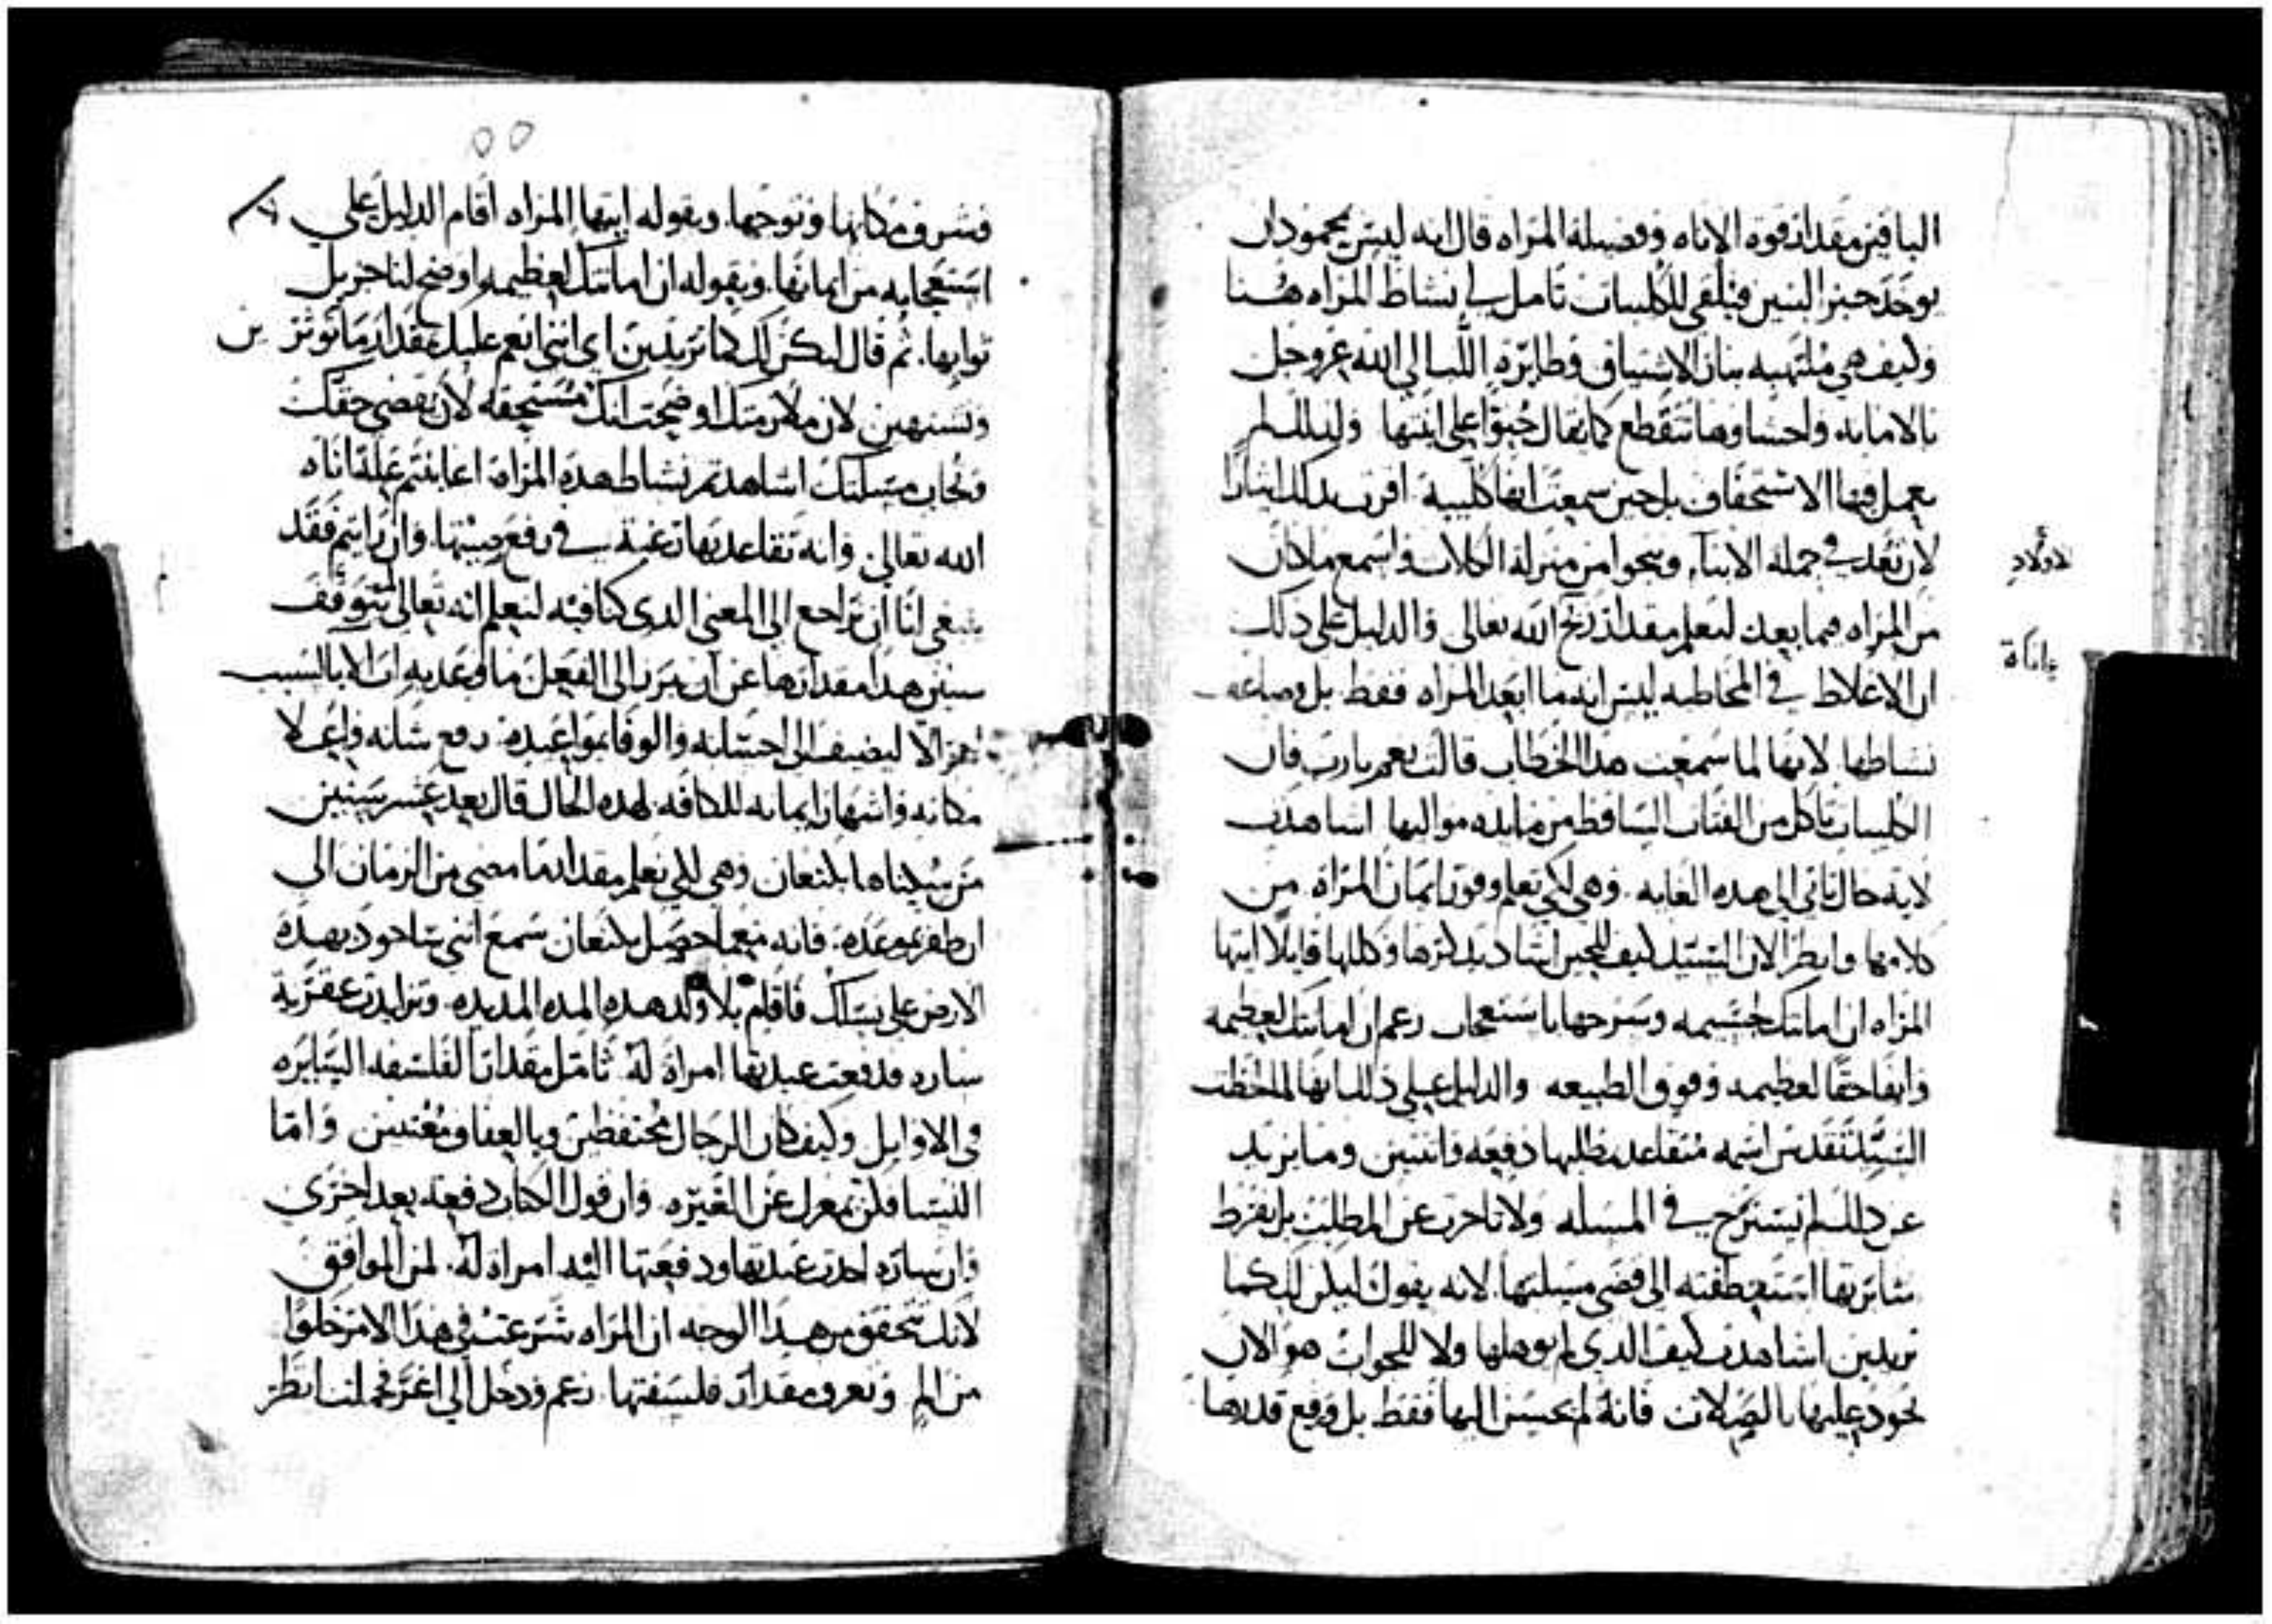 الباقين مقدار قوة الاناه وفضيلة المراه قال انه ليس بمحمود ان
يوخذ خبز البنين فيلقى للكليبات تامل لي نشاط المراه هنا
وكيف هي ملتهبه بنار الاشتياق وطايرة اللب الى الله عز وجل
بالامانه واحشاوها تتقطع كما يقال حبوا على ابنتها ولذلك لم
يعمل فيها الاستحقاق بل حين سمعت انها كليبة اقرت بذلك ايثارا
لان تعد في جملة الابنا وتنجوا من منزلة الكلاب واسمع ما كان
من المراه فيما بعد لتعلم مقدار ربح الله تعالى والدليل على ذلك
ان الاغلاط في المخاطبه ليس انه ما ابعد المراه فقط بل وضاعف
نشاطها لانها لما سمعت هذا الخطاب قالت نعم يارب فان
الكليبات تاكل من الفتات الساقط من مايده مواليها اشاهدت
لاية حال تاتي الى هذه الغايه وهي لكي تعلم وفور ايمان المراة من
كلامها وانظر الان السيد كيف للحين اشاد بذكرها وكللها قايلا ايتها
المراه ان امانتك لجسيمه وسرحها باستعجاب زعم ان امانتك لعظيمه
وانها حقا لعظيمه وفوق الطبيعه والدليل على ذلك انها لما لحظت
السيد تقدس اسمه متقاعد بطلبها دفعه واثنتين وما يزيد
عن ذلك لم تسترح في المسله ولا تاخرت عن المطلب بل بفرط
مثابرتها استعطفته الى قضى مسلتها لانه يقول ليكن لك كما
تريدين اشاهدت كيف الذي لم يوهلها ولا للجواب هو الان
يجود عليها بالصلات فانه لم يحسن اليها فقط بل ورفع قدرها
لاولاد
باناة
٥٥
فشرف مكانها وتوجها وبقوله ايتها المراه اقام الدليل على
استعجابه من ايمانها وبقوله ان امانتك لعظيمه اوضح لنا جزيل
ثوابها ثم قال ليكن لك كما تريدين اي انني انعم عليك بمقدار ما توثرين
وتشتهين لان ملازمتك اوضحت انك مستحقه لان يقضى حقك
وتجاب مسلتك اشاهدتم نشاط هذه المراة اعاينتم علة اناه
الله تعالى وانه تقاعد بها رغبة في رفع صيتها وان رايتم فقد
ينبغي لنا ان نراجع الى المعنى الذي كنا فيه لتعلم انه تعالى لم يتوقف
سنين هذا مقدارها عن ان يبرز الى الفعل ما وعد به ابرام الا بالسبب
اهر الا ليضيف الى احسانه والوفا بمواعيده رفع شانه واعلا
مكانه واشهار ايمانه للكافه لهذه الحال قال بعد عشر سنين
من سكناها بكنعان وهي لكي تعلم مقدار ما مضى من الزمان الى
ان ظفر بموعده فانه منهما احصل بكنعان سمع انني ساجود بهذه
الارض على نسلك فاقام بلا ولد هذه المدة المديده وتزايدت عقرية
ساره فدفعت عبدتها امراة له تامل مقدار الفلسفه السايره
في الاوايل وكيف كان الرجال محتفظين وبالعفاف معتنين واما
النسا فلكن بمعزل عن الغيره وان قول الكتاب دفعه بعد اخرى
وان ساره اخذت عبدتها ودفعتها اليه امراه له لمن الموافق
لانك تتحقق من هذا الوجه ان المراه شرعت في هذا الامر خلوا
من الم وتعرف مقدار فلسفتها زعم ودخل الى اغر فحملت انظر